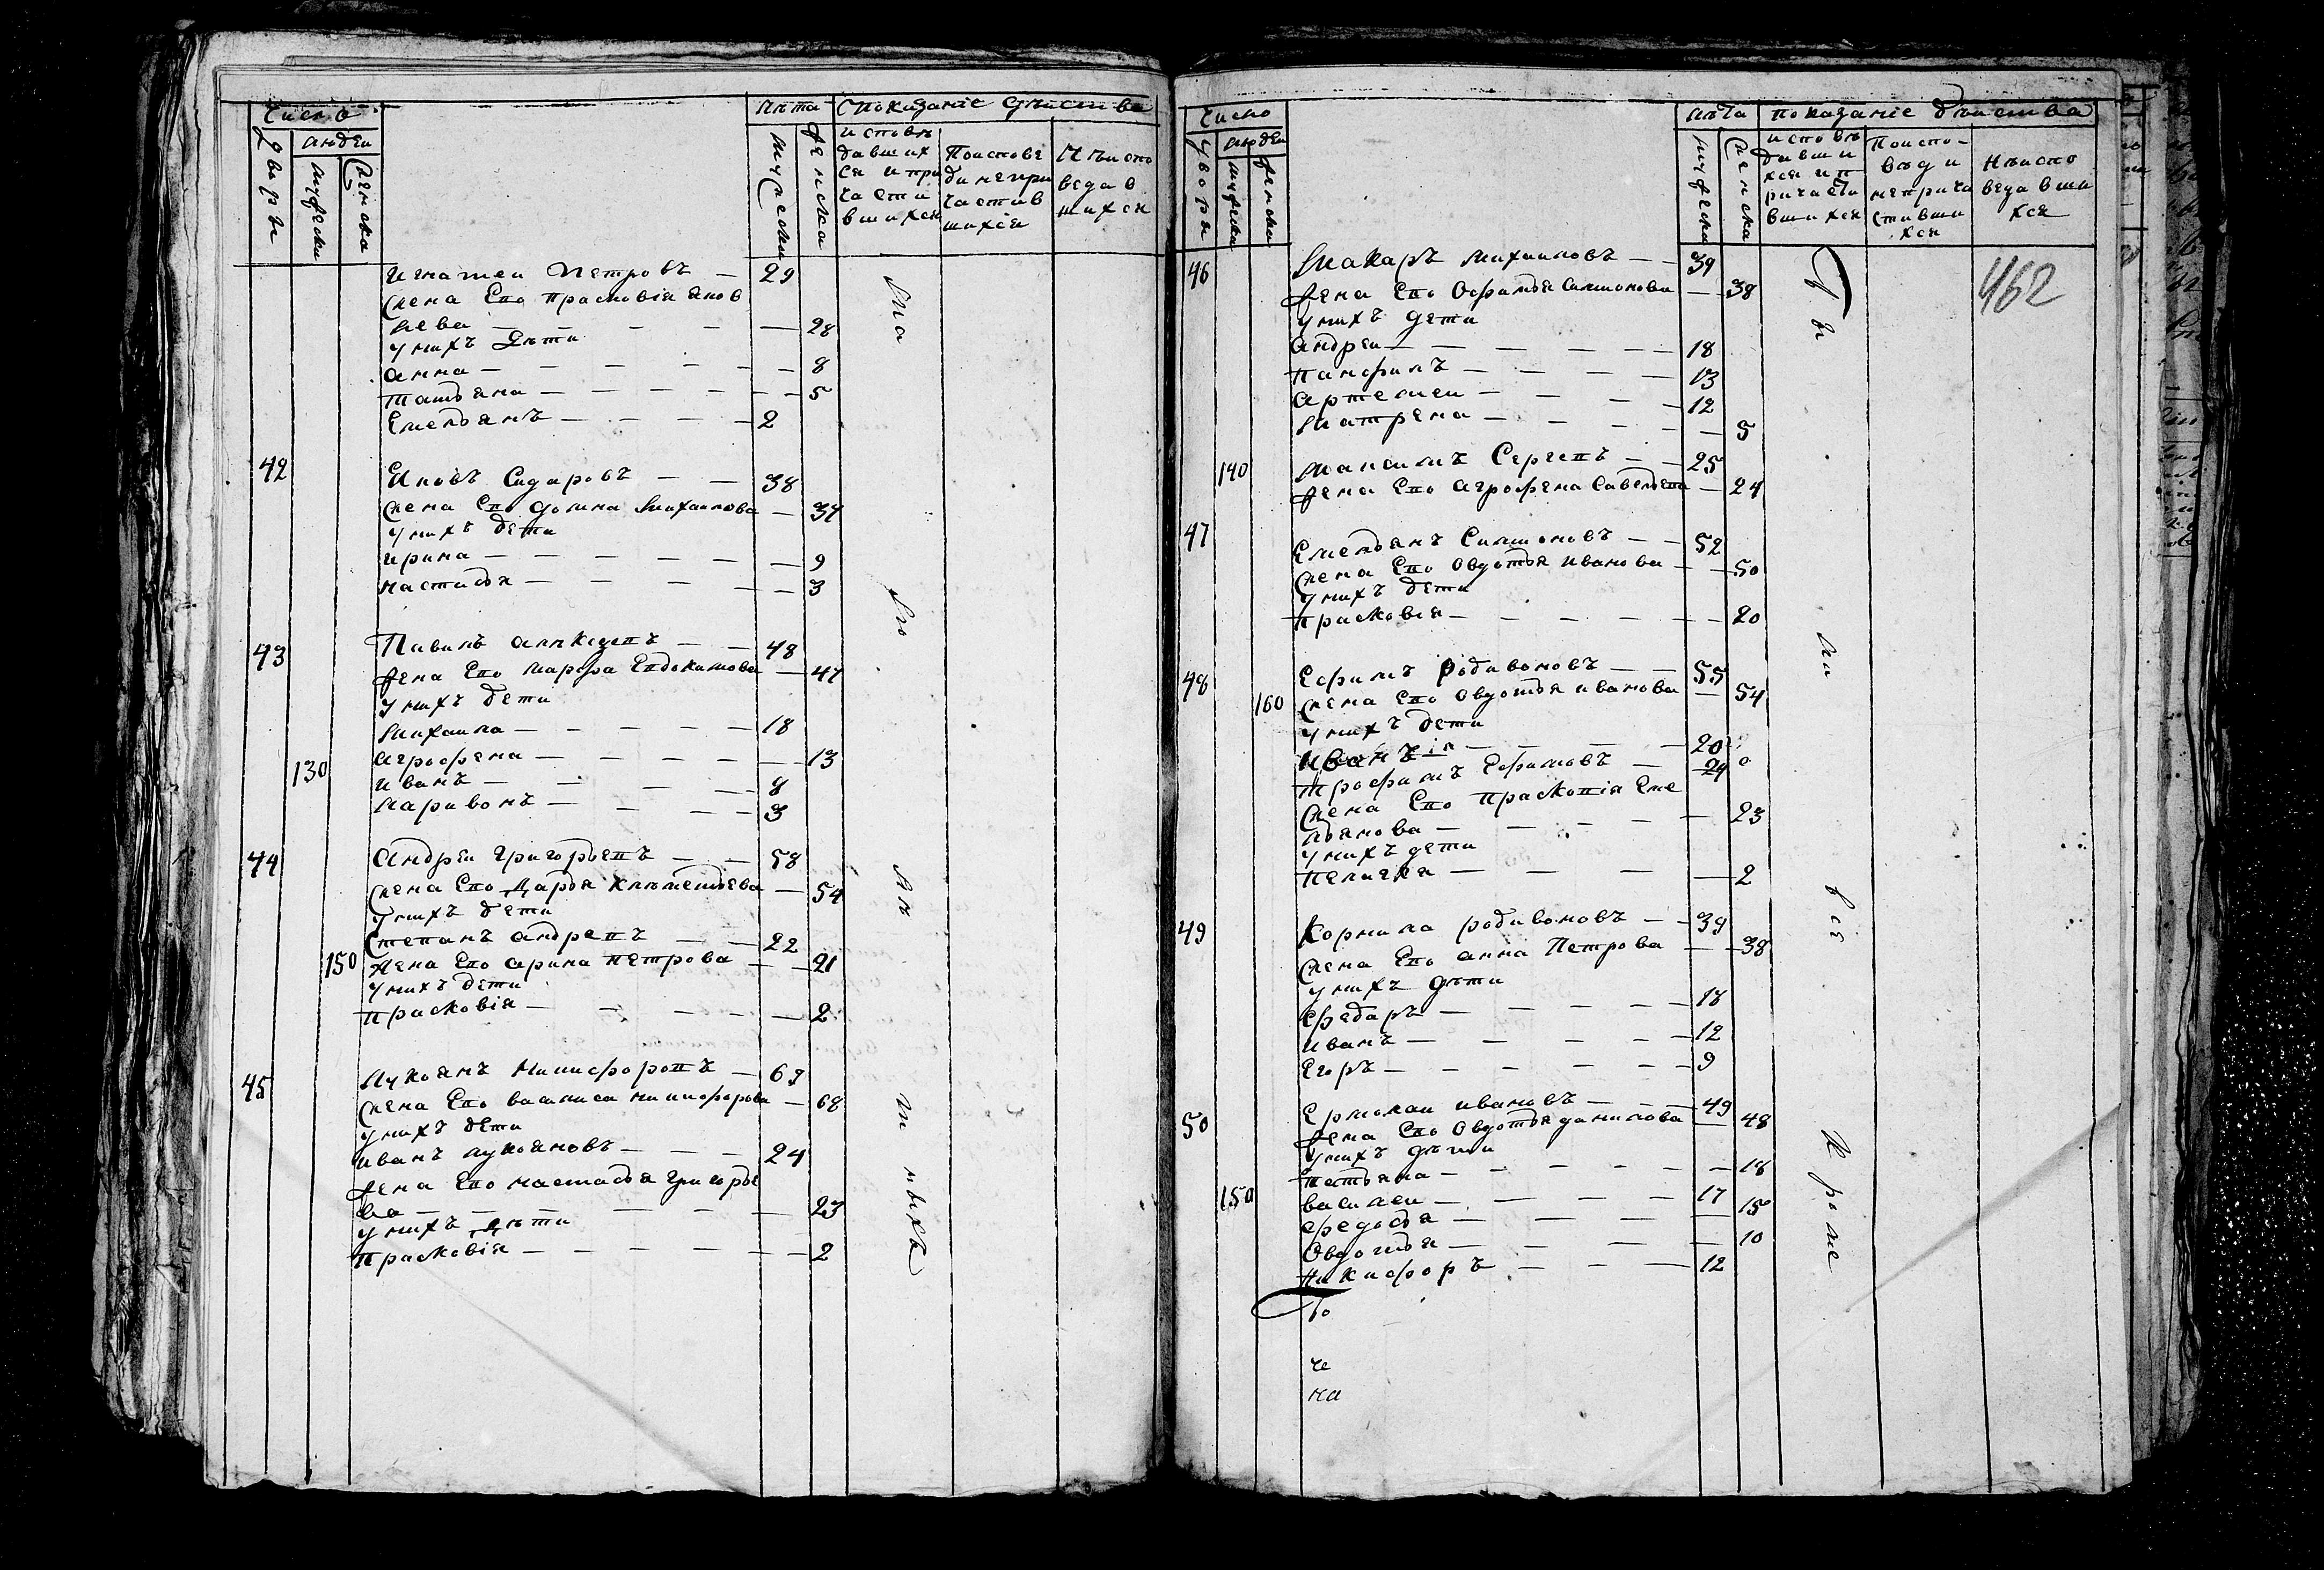 Число Лѣта Показаніе Дѣиства
Дворы людеи мужески женска мужески женска исповѣдавшихся и причастившихся Поисповединепричастившихся Нѣисповедавшихся
Игнатеи Петровъ — 29
жена Ево прасковія яков
лева — 28
у нихъ Дѣти
анна — 8
татьяна — 5
Емельянъ — 2
42 Яковъ Сидаровъ — 38
жена Ево домна михаилова — 34
у нихъ дети
ирина — 9
настасья — 3
43 Павилъ алѣкцѣевъ — 48
жена Ево марфа Евдокимова — 47
у нихъ дети
михаила — 18
агрофена — 13
130 иванъ — 8
ларивонъ — 3
44 Андреи григорьевъ — 58
жена Ево дарья клѣментьева — 54
у нихъ дети
Степанъ андревъ — 22
150 жена Ево арина петрова — 21
у нихъ дети
прасковія — 2
45 Лукьянъ Никифоровъ — 69
жена Ево василиса никифорова — 68
у нихъ дети
иванъ лукьяновъ — 24
жена Ево настасья григорье
ва — 23
у нихъ дѣти
прасковія — 2
ма ло лѣ т ныхъ
Число лѣта показаніе дѣиства
Дворы людеи мужески женски мужески женска исповѣдавшихся и причастившихся Поисповѣди непричастившихся Нѣисповедавшихся
462
46 Макаръ михаиловъ — 39
жена Ево Офимья Симонова — 38
у нихъ дети
андреи — 18
панфилъ — 13
артемеи — 12
матрена — 5
140 максимъ Сергевъ — 25
жена Ево агрофена Савельева — 24
47 Емельянъ Симоновъ — 52
жена Ево Овдотья иванова — 50
у нихъ дети
прасковія — 20
48 Ефимъ родивоновъ — 55
160 жена Ево Овдотья иванова — 54
у нихъ дети
иванъ — 20
трофимъ Ефимовъ — 24
жена Ево прасковія Еме
льянова — 23
у нихъ дети
пелагея — 2
49 Корнила родивоновъ — 39
жена Ево анна Петрова — 38
у нихъ дѣти
фёдаръ — 18
иванъ — 12
Егоръ — 9
50 Ермолаи ивановъ — 49
жена Ево Овдотья данилова — 48
у нихъ дѣти
татьяна — 18
150 василеи — 17
федосья — 15
Овдотья — 10
Никифоръ — 12
бы ли все кроме